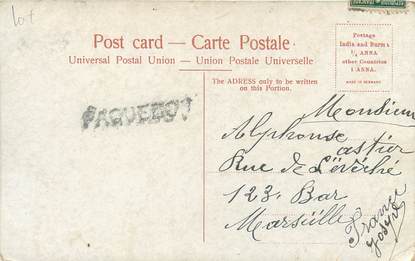 lot
Post card — Carte Postale
Universal Postal Union — Union Postale Universelle
The ADRESS only to be written
on this Portion.
Postage
India and Burma
½ ANNA
other Countries
1 ANNA.
MADE IN GERMANY
PAQUEBOT
Monsieur
Alphonse
astier
Rue de L'évêché
123. Bar
Marseille
France